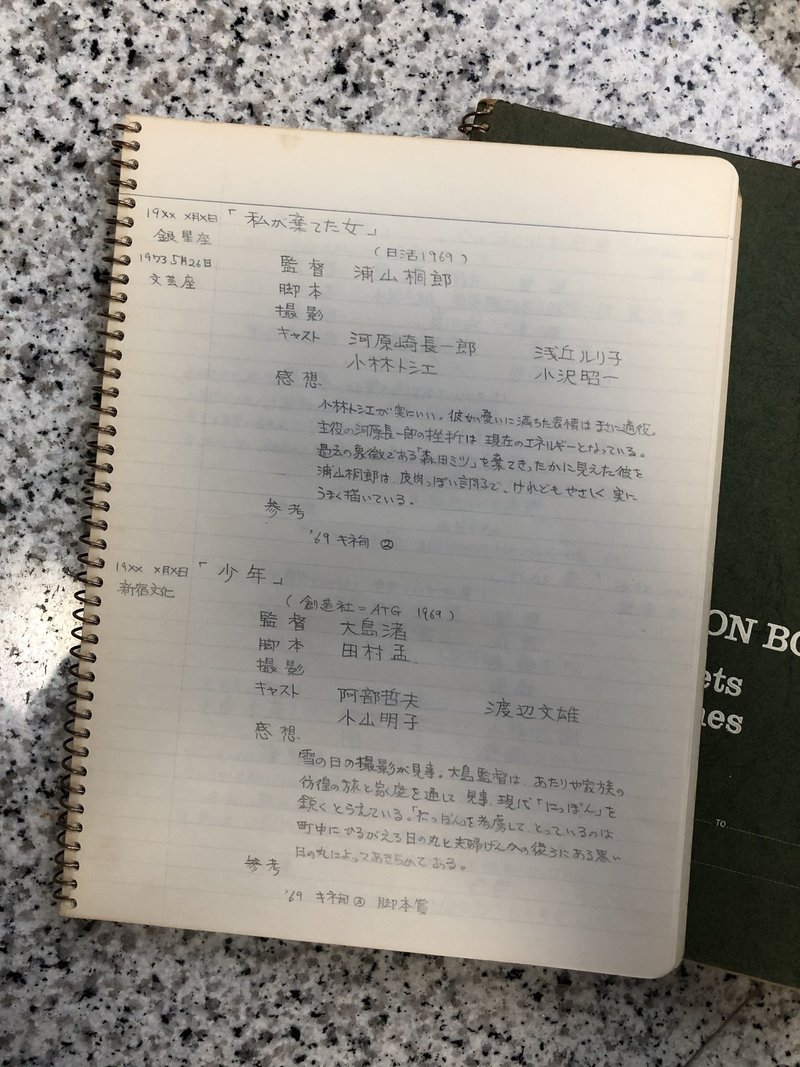 19XX X月X日 「私が棄てた女」
銀星座
(日活1969)
1973 5月26日
文芸座
監督 浦山桐郎
脚本
撮影
キャスト 河原崎長一郎 浅丘ルリ子
小林トシエ 小沢昭一
感想
小林トシエが実にいい。彼女の憂いに満ちた表情はまさに適役。
主役の河原長一郎の挫折は、現在のエネルギーとなっている。
過去の象徴である「森田ミツ」を棄てきったかに見えた彼を
浦山桐郎は、皮肉っぽい調子で、けれどもやさしく実に
うまく描いている。
参考
'69 キネ旬 ②
19XX X月X日 「少年」
新宿文化
(創造社=ATG 1969)
監督 大島渚
脚本 田村孟
撮影
キャスト 阿部哲夫 渡辺文雄
小山明子
感想
雪の日の撮影が見事。大島監督は、あたりや家族の
彷徨の旅と家庭を通して、見事、現代「にっぽん」を
鋭くとらえている。「にっぽん」を考慮して、とっているのは
町中にひるがえる日の丸と夫婦げんかの後ろにある黒い
日の丸によってあきらかである。
参考
'69 キネ旬③ 脚本賞
ON BO
ets
nes
TO